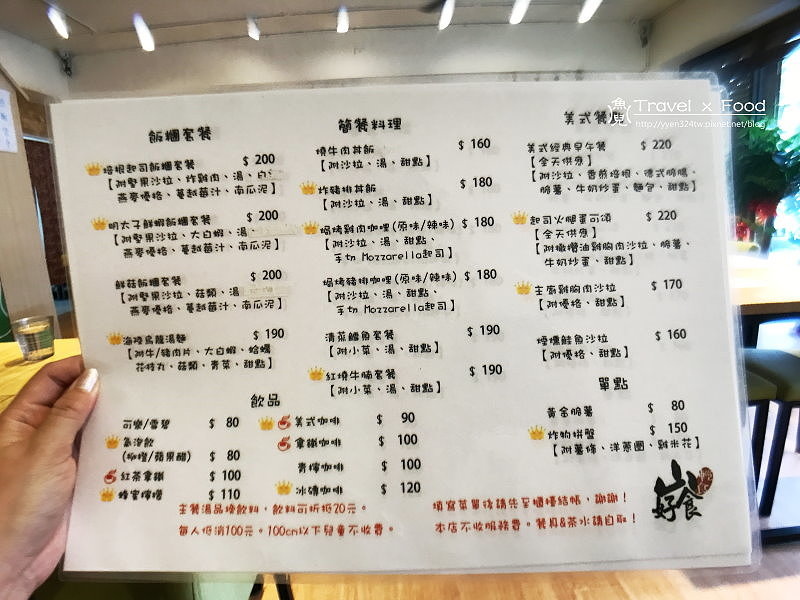 魚兒 Travel x Food
http://yyen324tw.pixnet.net/blog
飯糰套餐
培根起司飯糰套餐 $ 200
【附堅果沙拉、炸雞肉、湯、
燕麥優格、蔓越莓汁、南瓜泥】
明太子鮮蝦飯糰套餐 $ 200
【附堅果沙拉、大白蝦、湯、
燕麥優格、蔓越莓汁、南瓜泥】
鮮菇飯糰套餐 $ 200
【附堅果沙拉、菇類、湯
燕麥優格、蔓越莓汁、南瓜泥】
海陸烏龍湯麵 $ 190
【附牛/豬肉片、大白蝦、蛤蠣
花枝丸、菇類、青菜、甜點】
簡餐料理
燒牛肉丼飯 $ 160
【附沙拉、湯、甜點】
炸豬排丼飯 $ 180
【附沙拉、湯、甜點】
焗烤雞肉咖哩(原味/辣味) $ 180
【附沙拉、湯、甜點、
手切 Mozzarella起司】
焗烤豬排咖哩(原味/辣味) $ 180
【附沙拉、湯、甜點、
手切 Mozzarella起司】
清蒸鱈魚套餐 $ 190
【附小菜、湯、甜點】
紅燒牛腩套餐 $ 190
【附小菜、湯、甜點】
美式餐
美式經典早午餐 $ 220
【全天供應】
【附沙拉、香煎培根、德式脆腸、
脆薯、牛奶炒蛋、麵包、甜點】
起司火腿蛋可頌 $ 220
【全天供應】
【附橄欖油雞胸肉沙拉、脆薯、
牛奶炒蛋、甜點】
主廚雞胸肉沙拉 $ 170
【附優格、甜點】
煙燻鮭魚沙拉 $ 160
【附優格、甜點】
單點
黃金脆薯 $ 80
炸物拼盤 $ 150
【附薯條、洋蔥圈、雞米花】
飲品
可樂/雪碧 $ 80
氣泡飲
(柳橙/蘋果醋) $ 80
紅茶拿鐵 $ 100
蜂蜜檸檬 $ 110
美式咖啡 $ 90
拿鐵咖啡 $ 100
青檸咖啡 $ 100
冰磚咖啡 $ 120
主餐湯品換飲料，飲料可折抵20元。
每人低消100元。100cm以下兒童不收費。
填寫菜單後請先至櫃檯結帳，謝謝！
本店不收服務費。餐具&茶水請自取！
好食